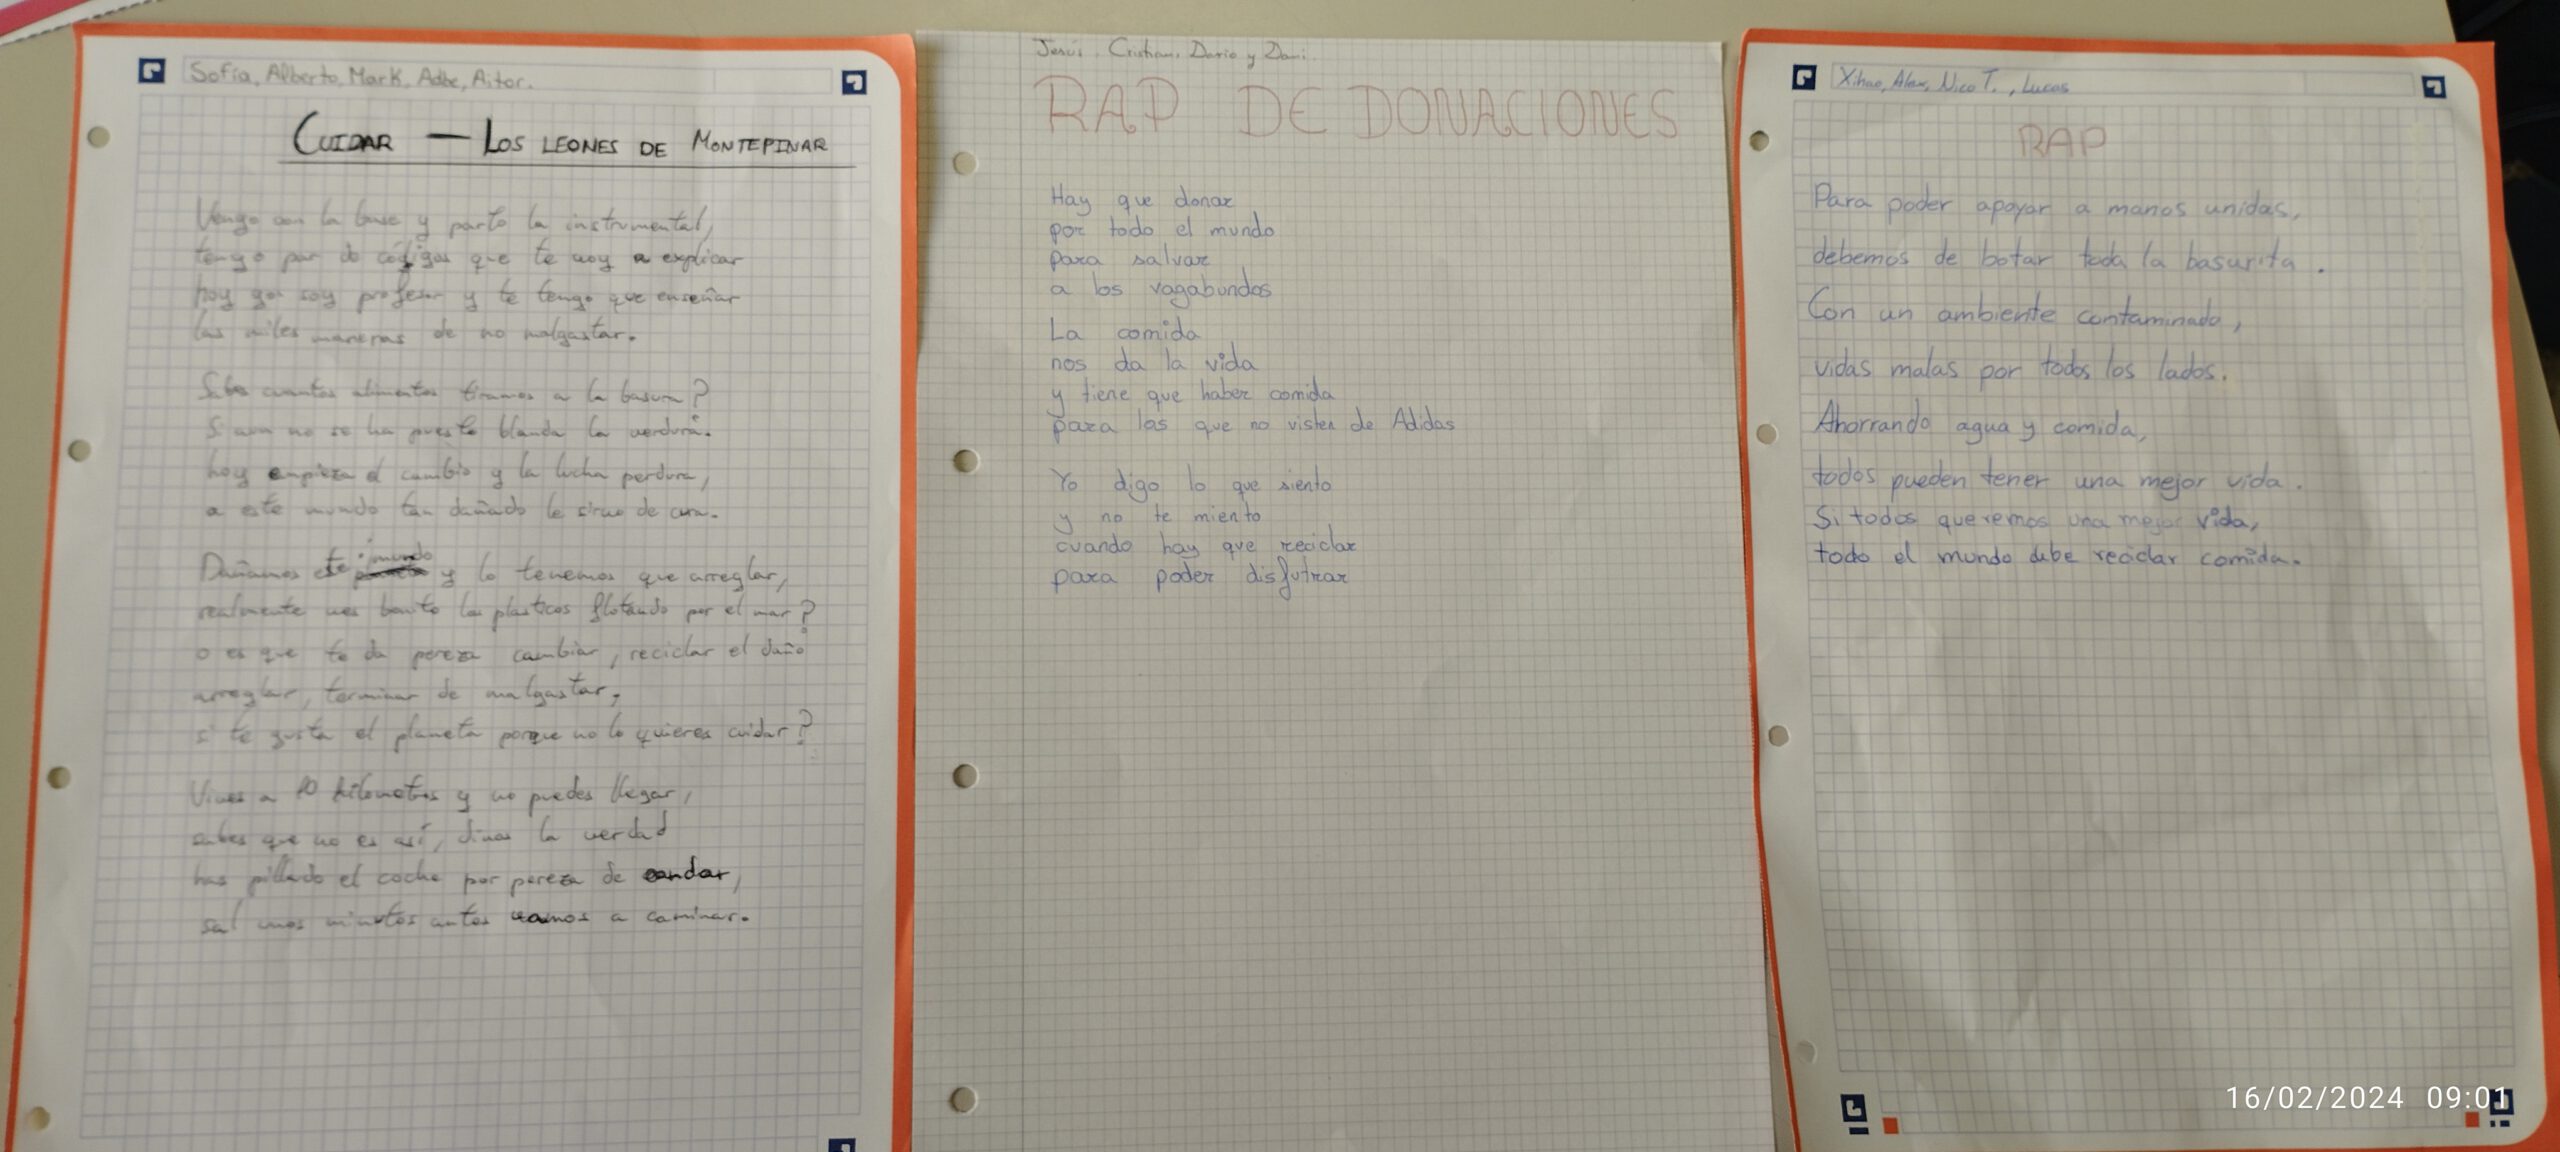 Sofía, Alberto, Mark, Adbe, Aitor.
CUIDAR — LOS LEONES DE MONTEPINAR
Vengo con la base y parto la instrumental,
tengo par de códigos que te voy a explicar
hoy yo soy profesor y te tengo que enseñar
las miles maneras de no malgastar.
Sabes cuantos alimentos tiramos a la basura?
Si aun no se ha puesto blanda la verdura.
hoy empieza el cambio y la lucha perdura,
a este mundo tan dañado le sirve de cura.
Dañamos este mundo y lo tenemos que arreglar,
realmente ves bonito los plasticos flotando por el mar?
o es que te da pereza cambiar, reciclar el daño
arreglar, terminar de malgastar,
si te gusta el planeta porque no lo quieres cuidar?
Vives a 10 kilometros y no puedes llegar,
sabes que no es así, dinos la verdad
has pillado el coche por pereza de andar,
sal unos minutos antes vamos a caminar.
Jesús, Cristian, Dario y Dani.
RAP DE DONACIONES
Hay que donar
por todo el mundo
para salvar
a los vagabundos
La comida
nos da la vida
y tiene que haber comida
para los que no visten de Adidas
Yo digo lo que siento
y no te miento
cuando hay que reciclar
para poder disfutrar
Xihao, Alex, Nico T., Lucas
RAP
Para poder apoyar a manos unidas,
debemos de botar toda la basurita.
Con un ambiente contaminado,
vidas malas por todos los lados.
Ahorrando agua y comida,
todos pueden tener una mejor vida.
Si todos queremos una mejor vida,
todo el mundo debe reciclar comida.
16/02/2024 09:01